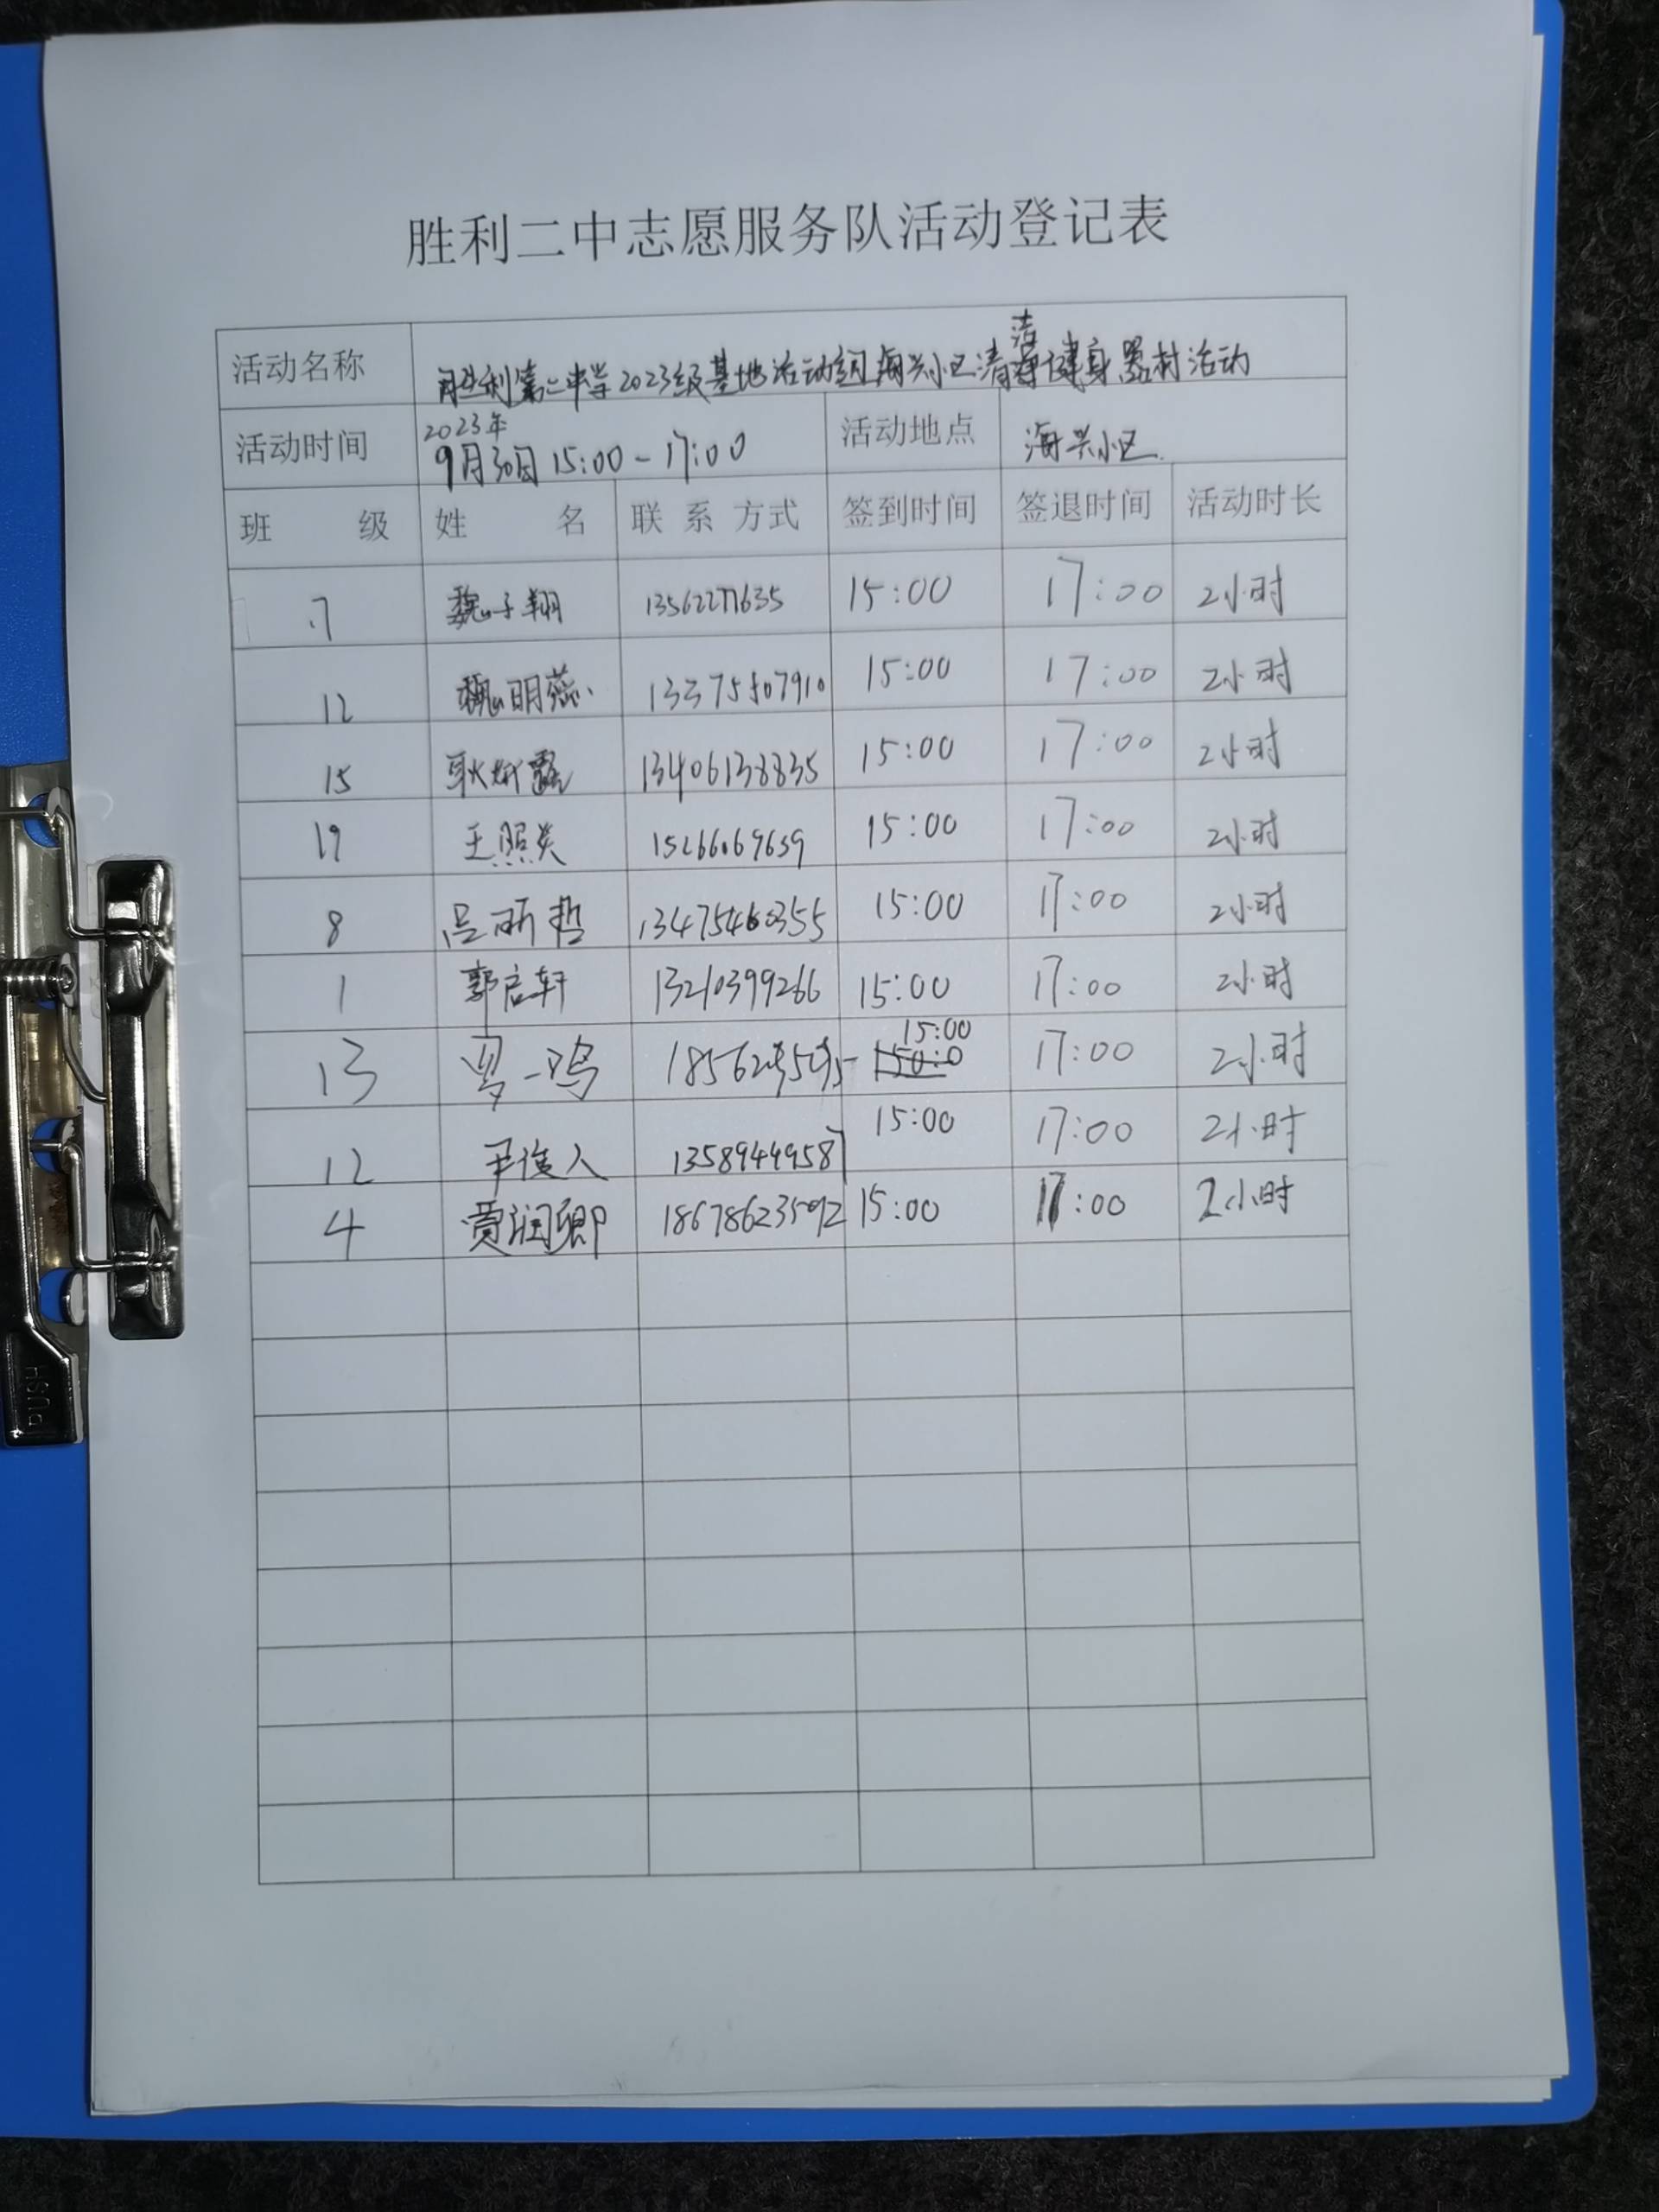 胜利二中志愿服务队活动登记表
活动名称 胜利第二中学2023级基地活动组海兴小区清洁健身器材活动
活动时间 2023年9月30日 15:00-17:00 活动地点 海兴小区
班 级 姓 名 联系方式 签到时间 签退时间 活动时长
7 魏子翔 13562277635 15:00 17:00 2小时
12 魏明燕 13375507910 15:00 17:00 2小时
15 耿 露 13406138835 15:00 17:00 2小时
19 王照 15266069659 15:00 17:00 2小时
8 吕昕哲 13475460355 15:00 17:00 2小时
1 郭启轩 13210399266 15:00 17:00 2小时
13 罗一鸣 15:00 17:00 2小时
12 尹 人 13589449587 15:00 17:00 2小时
4 贾润卿 18678623592 15:00 17:00 2小时
PUSH